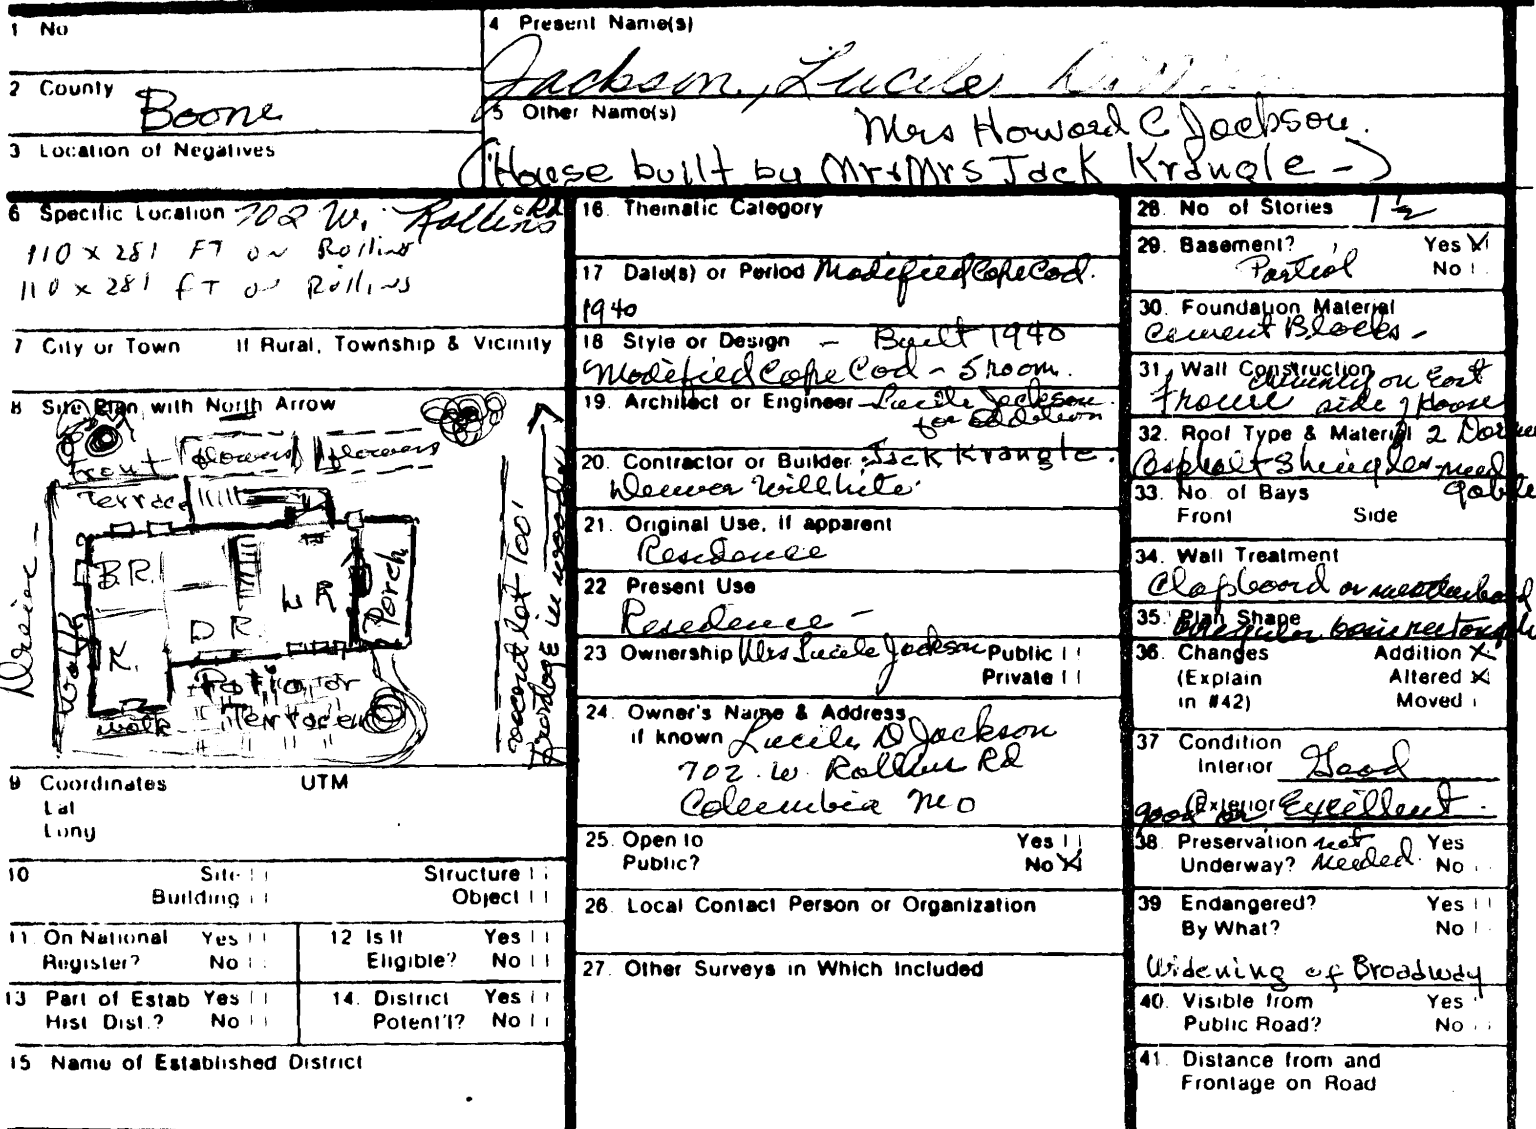 1 No
2 County Boone
3 Location of Negatives
4 Present Name(s)
Jackson, Lucile
5 Other Name(s) Mrs Howard C Jackson.
(House built by Mr & Mrs Jack Krangle -)
6 Specific Location 702 W. Rollins Rd
110 x 281 FT on Rollins
110 x 281 FT on Rollins
7 City or Town If Rural, Township & Vicinity
8 Site Plan with North Arrow
front flowers flowers
Terrace
Drive
walk
B.R.
K.
D R.
L R
Porch
Patio or
Terrace
walk
vacant lot 100'
frontage in woods
9 Coordinates UTM
Lat
Long
10 Site Structure
Building Object
11 On National Yes
Register? No
12 Is It Yes
Eligible? No
13 Part of Estab Yes
Hist Dist.? No
14. District Yes
Potent'l? No
15 Name of Established District
16. Thematic Category
17 Date(s) or Period Modified Cape Cod.
1940
18 Style or Design - Built 1940
Modified Cape Cod - 5 room.
19. Architect or Engineer Lucile Jackson
for addition
20. Contractor or Builder Jack Krangle.
Denver Willhite
21. Original Use, if apparent
Residence
22 Present Use
Residence -
23 Ownership Mrs Lucile Jackson Public
Private
24. Owner's Name & Address,
if known Lucile D Jackson
702 W. Rollins Rd
Columbia Mo
25. Open to Yes
Public? No X
26. Local Contact Person or Organization
27. Other Surveys in Which Included
28. No of Stories 1½
29. Basement? Yes X
Partial No
30. Foundation Material
Cement Blocks -
31. Wall Construction
Frame chimney on East
side of House
32. Roof Type & Material 2 Dormer
Asphalt Shingles
gable
33. No. of Bays
Front Side
34. Wall Treatment
Clapboard or weatherboard
35. Plan Shape
Irregular
36. Changes Addition X
(Explain Altered X
in #42) Moved
37 Condition
Interior Good
Exterior Excellent.
good or
38. Preservation not Yes
Underway? needed. No
39 Endangered? Yes
By What? No
Widening of Broadway
40. Visible from Yes
Public Road? No
41. Distance from and
Frontage on Road